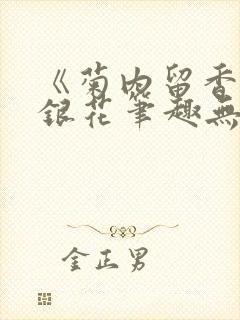 《菊内留香
銀花筆趣無
金正男